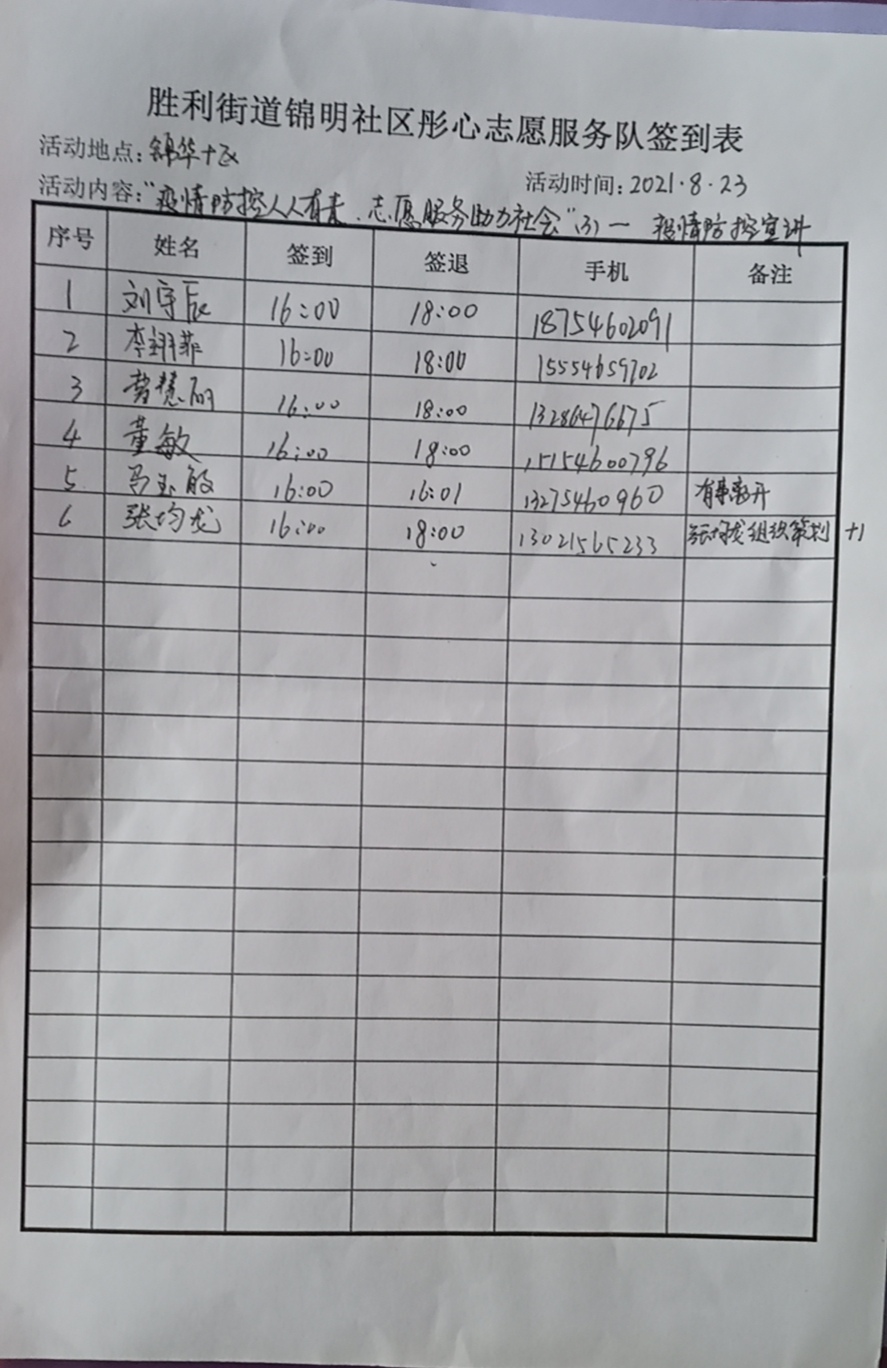 胜利街道锦明社区彤心志愿服务队签到表
活动地点:锦华十区
活动时间:2021.8.23
活动内容:"疫情防控人人有责、志愿服务助力社会"(3)一 疫情防控宣讲
序号 姓名 签到 签退 手机 备注
1 刘守辰 16:00 18:00 18754602091
2 李翊菲 16:00 18:00 15554659702
3 慧 16:00 18:00 13286476675
4 董敏 16:00 18:00 15154600796
5 马玉敏 16:00 16:01 13275460960 有事离开
6 张均龙 16:00 18:00 13021565233 张均龙组织策划 +1